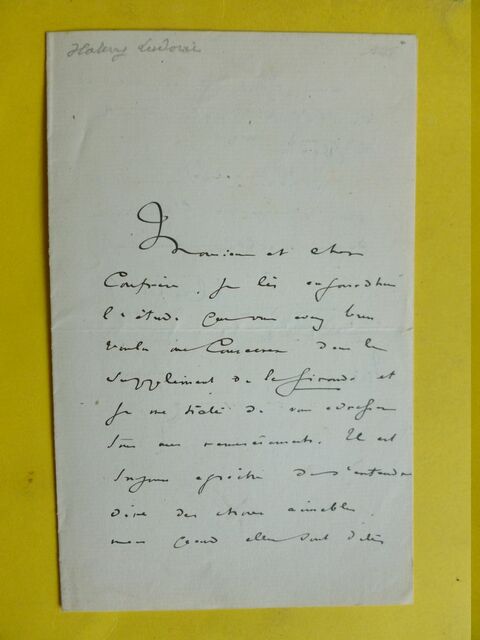 Halévy Ludovic
Monsieur et cher
Confrère, je lis aujourd'hui
l'étude que vous avez bien
voulu me consacrer dans le
supplément de la Gironde et
je me hâte de vous adresser
tous mes remerciements. Il est
toujours agréable de s'entendre
dire des choses aimables
mais quand elles sont dites